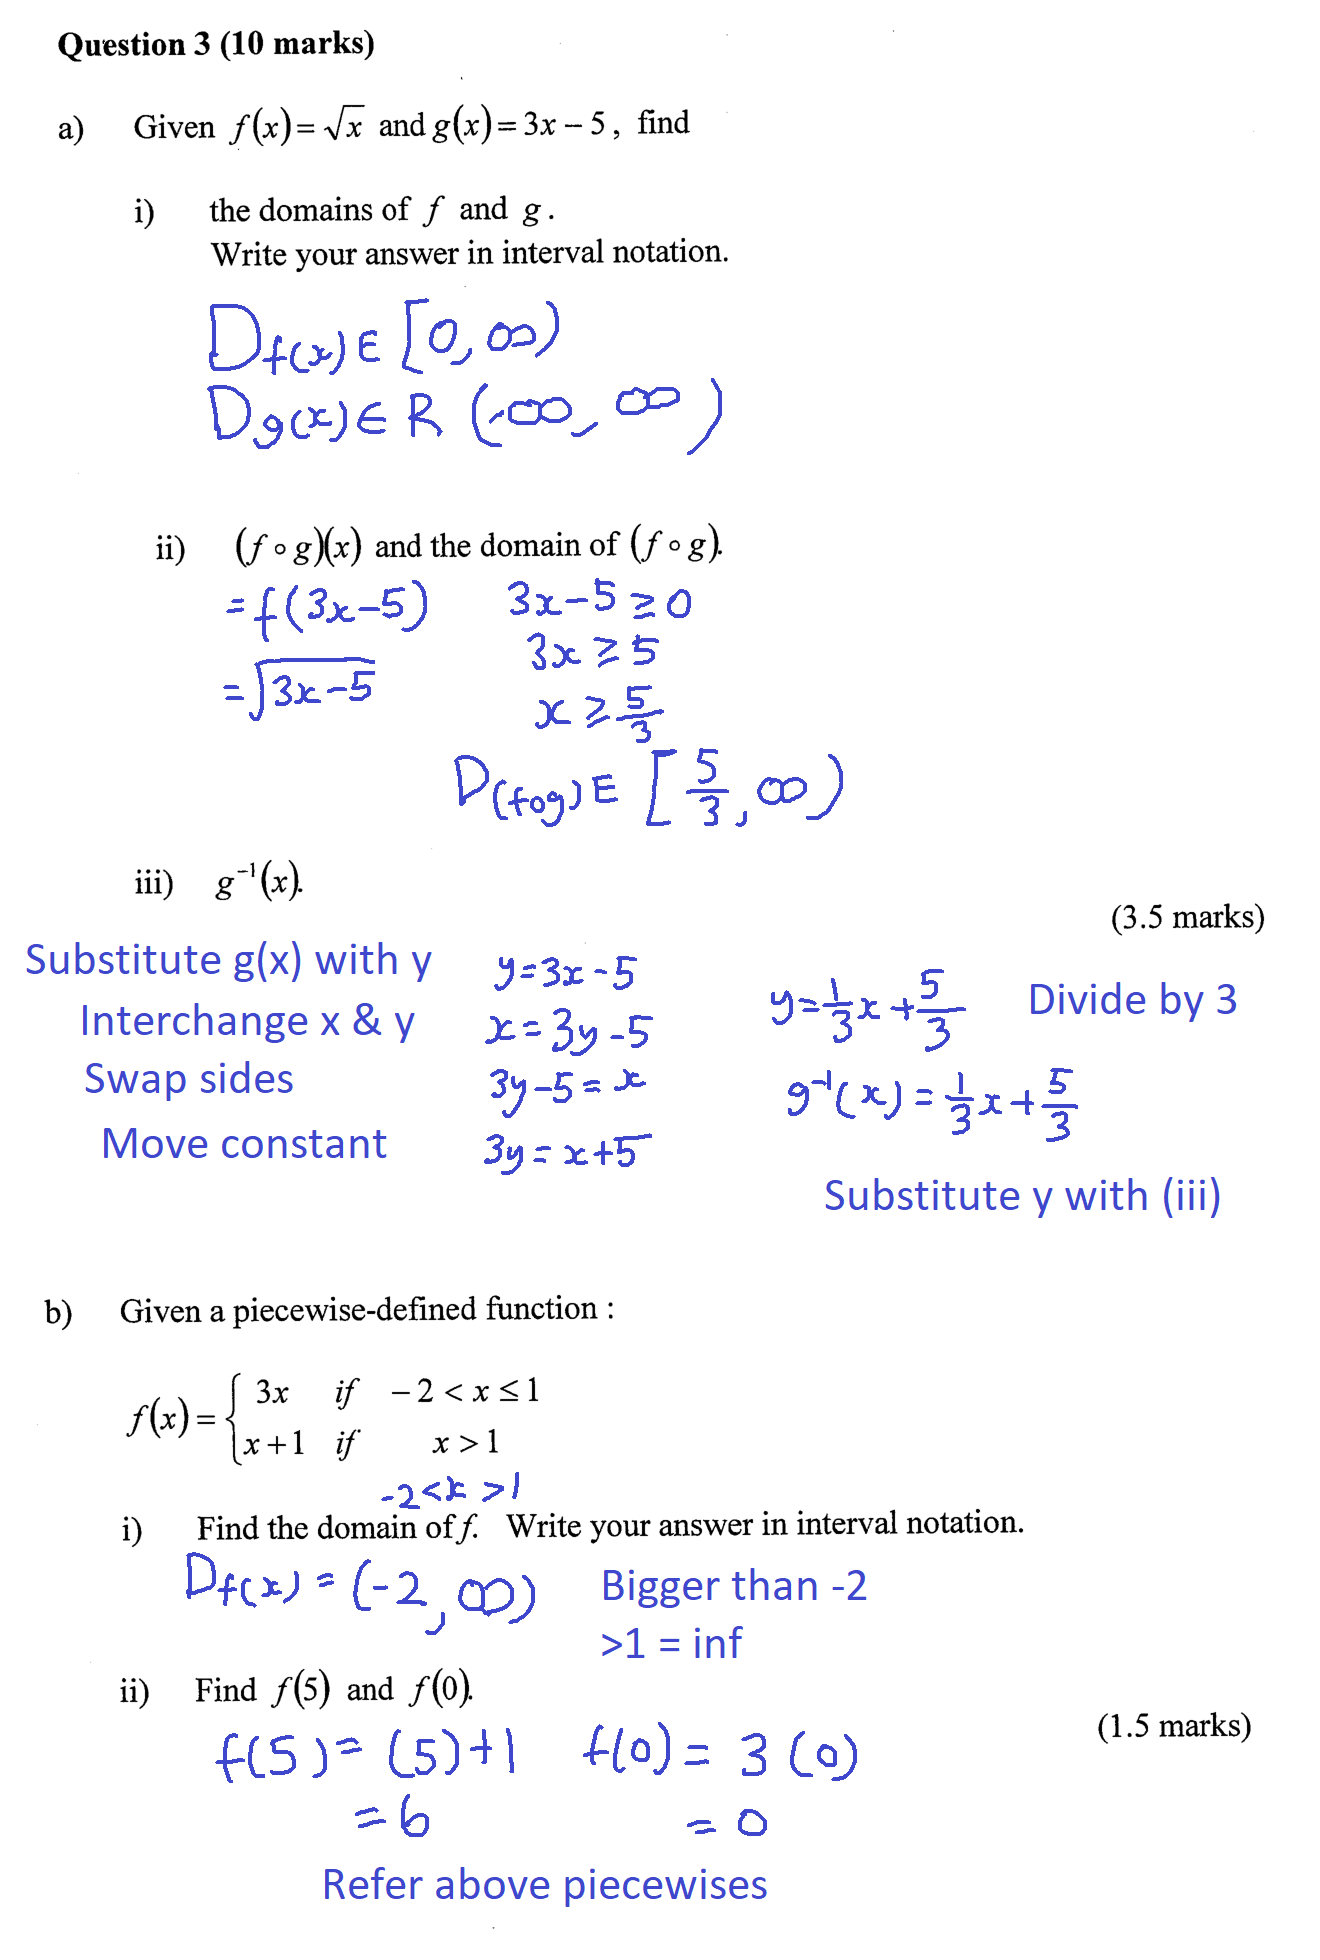 Question 3 (10 marks)
a) Given f(x)=√x and g(x)=3x−5, find
i) the domains of f and g.
Write your answer in interval notation.
D_f(x) ∈ [0, ∞)
D_g(x) ∈ R (-∞, ∞)
ii) (f∘g)(x) and the domain of (f∘g).
=f(3x−5) 3x−5 ≥ 0
=√(3x−5) 3x ≥ 5
x ≥ 5/3
D_(fog) ∈ [5/3, ∞)
iii) g⁻¹(x).
(3.5 marks)
Substitute g(x) with y y=3x-5 y=1/3x+5/3 Divide by 3
Interchange x & y x=3y-5
Swap sides 3y-5=x g⁻¹(x)=1/3x+5/3
Move constant 3y=x+5
Substitute y with (iii)
b) Given a piecewise-defined function :
f(x)={ 3x if −2<x≤1
x+1 if x>1
-2<x >1
i) Find the domain of f. Write your answer in interval notation.
D_f(x) = (-2, ∞) Bigger than -2
>1 = inf
ii) Find f(5) and f(0).
(1.5 marks)
f(5)=(5)+1 f(0)=3(0)
=6 =0
Refer above piecewises